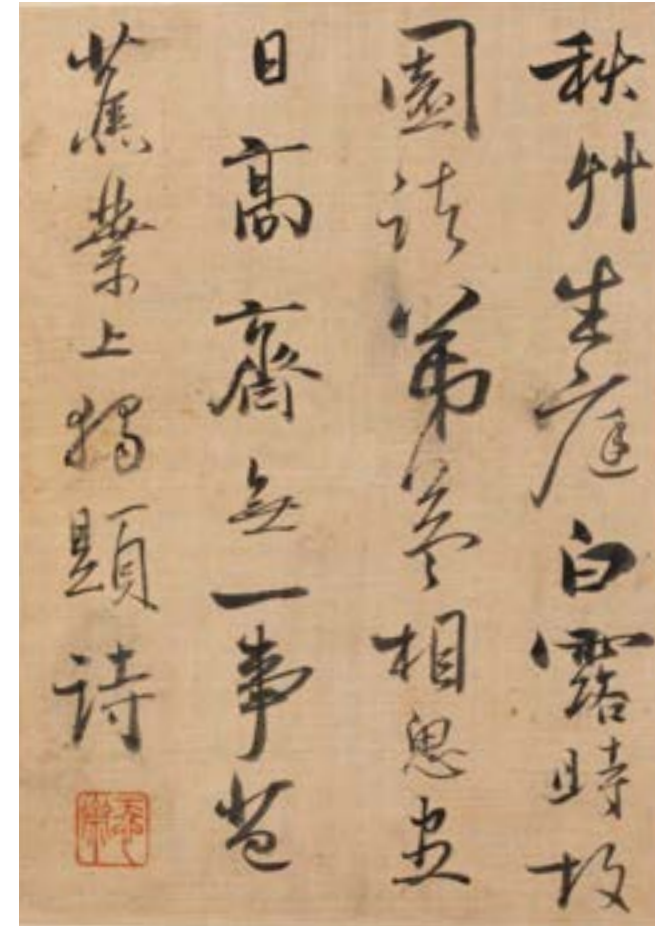 秋艸生庭白露時故
園諸弟益相思盡
日高齋無一事芭
蕉葉上獨題詩